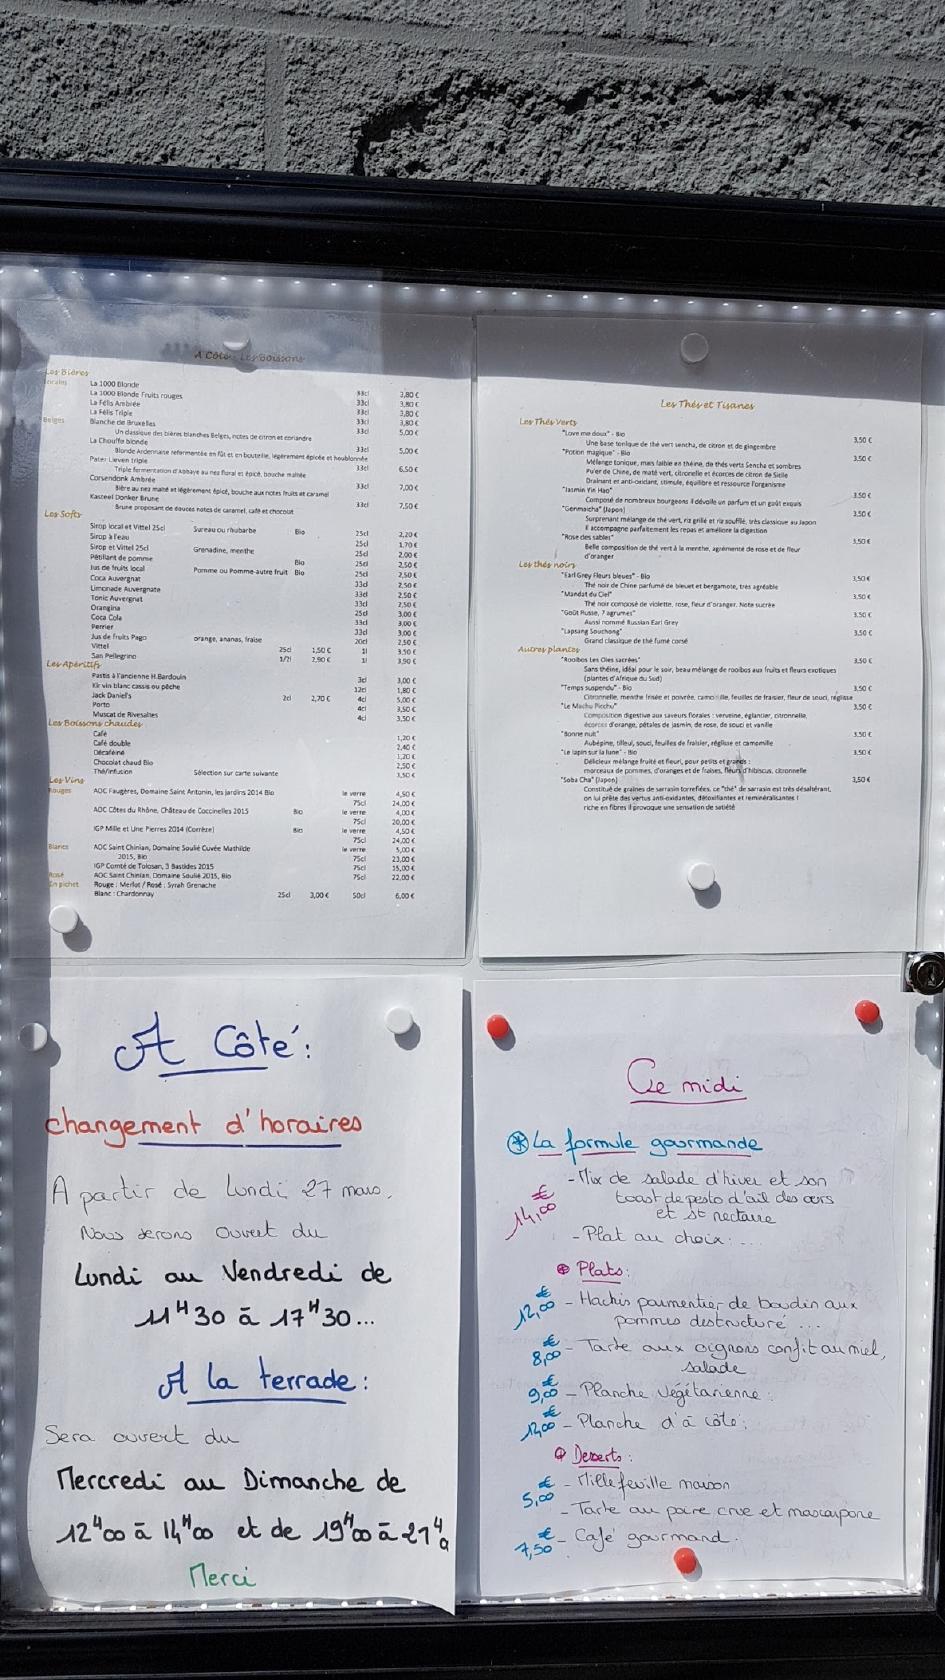 A Côté - Les Boissons
Les Bières
Locales La 1000 Blonde 33cl 3,80 €
La 1000 Blonde Fruits rouges 33cl 3,80 €
La Félis Ambrée 33cl 3,80 €
La Félis Triple 33cl 5,00 €
Belges Blanche de Bruxelles
Un classique des bières blanches Belges, notes de citron et coriandre 33cl 5,00 €
La Chouffe blonde
Blonde Ardennaise refermentée en fût et en bouteille, légèrement épicée et houblonnée 33cl 6,50 €
Pater Lieven triple
Triple fermentation d'Abbaye au nez floral et épicé, bouche maltée 33cl 7,00 €
Corsendonk Ambrée
Bière au nez malté et légèrement épicé, bouche aux notes fruits et caramel 33cl 7,50 €
Kasteel Donker Brune
Brune proposant de douces notes de caramel, café et chocolat
Les Softs
Sirop local et Vittel 25cl Sureau ou rhubarbe Bio 25cl 2,20 €
Sirop à l'eau 25cl 1,70 €
Sirop et Vittel 25cl Grenadine, menthe 25cl 2,00 €
Pétillant de pomme Bio 25cl 2,50 €
Jus de fruits local Pomme ou Pomme-autre fruit Bio 25cl 2,50 €
Coca Auvergnat 33cl 2,50 €
Limonade Auvergnate 33cl 2,50 €
Tonic Auvergnat 33cl 2,50 €
Orangina 25cl 3,00 €
Coca Cola 33cl 3,00 €
Perrier 33cl 3,00 €
Jus de fruits Pago orange, ananas, fraise 20cl 2,50 €
Vittel 25cl 1,50 € 1l 3,50 €
San Pellegrino 1/2l 2,90 € 1l 3,90 €
Les Apéritifs
Pastis à l'ancienne H.Bardouin 3cl 3,00 €
Kir vin blanc cassis ou pêche 12cl 1,80 €
Jack Daniel's 2cl 2,70 € 4cl 5,00 €
Porto 4cl 3,50 €
Muscat de Rivesaltes 4cl 3,50 €
Les Boissons chaudes
Café 1,20 €
Café double 2,40 €
Décaféiné 1,20 €
Chocolat chaud Bio 2,50 €
Thé/Infusion Sélection sur carte suivante 3,50 €
Les Vins
Rouges AOC Faugères, Domaine Saint Antonin, les jardins 2014 Bio le verre 4,50 €
75cl 24,00 €
AOC Côtes du Rhône, Château de Coccinelles 2015 Bio le verre 4,00 €
75cl 20,00 €
IGP Mille et Une Pierres 2014 (Corrèze) Bio le verre 4,50 €
75cl 24,00 €
Blancs AOC Saint Chinian, Domaine Soulié Cuvée Mathilde le verre 5,00 €
2015, Bio 75cl 23,00 €
IGP Comté de Tolosan, 3 Bastides 2015 75cl 15,00 €
Rosé AOC Saint Chinian, Domaine Soulié 2015, Bio 75cl 22,00 €
En pichet Rouge : Merlot / Rosé : Syrah Grenache
Blanc : Chardonnay 25cl 3,00 € 50cl 6,00 €
Les Thés et Tisanes
Les Thés Verts
"Love me doux" - Bio 3,50 €
Une base tonique de thé vert sencha, de citron et de gingembre
"Potion magique" - Bio 3,50 €
Mélange tonique, mais faible en théine, de thés verts Sencha et sombres
Pu'er de Chine, de maté vert, citronelle et écorces de citron de Sicile
Drainant et anti-oxidant, stimule, équilibre et ressource l'organisme
"Jasmin Yin Hao" 3,50 €
Composé de nombreux bourgeons il dévoile un parfum et un goût exquis
"Genmaicha" (Japon) 3,50 €
Surprenant mélange de thé vert, riz grillé et riz soufflé, très classique au Japon
Il accompagne parfaitement les repas et améliore la digestion
"Rose des sables" 3,50 €
Belle composition de thé vert à la menthe, agrémenté de rose et de fleur
d'oranger
Les thés noirs
"Earl Grey Fleurs bleues" - Bio 3,50 €
Thé noir de Chine parfumé de bleuet et bergamote, très agréable
"Mandat du Ciel" 3,50 €
Thé noir composé de violette, rose, fleur d'oranger. Note sucrée
"Goût Russe, 7 agrumes" 3,50 €
Aussi nommé Russian Earl Grey
"Lapsang Souchong" 3,50 €
Grand classique de thé fumé corsé
Autres plantes
"Rooibos Les Oies sacrées" 3,50 €
Sans théine, idéal pour le soir, beau mélange de rooibos aux fruits et fleurs exotiques
(plantes d'Afrique du Sud)
"Temps suspendu" - Bio 3,50 €
Citronnelle, menthe frisée et poivrée, camomille, feuilles de fraisier, fleur de souci, réglisse
"Le Machu Picchu" 3,50 €
Composition digestive aux saveurs florales : verveine, églantier, citronnelle,
écorces d'orange, pétales de jasmin, de rose, de souci et vanille
"Bonne nuit" 3,50 €
Aubépine, tilleul, souci, feuilles de fraisier, réglisse et camomille
"Le lapin sur la lune" - Bio 3,50 €
Délicieux mélange fruité et fleuri, pour petits et grands :
morceaux de pommes, d'oranges et de fraises, fleurs d'hibiscus, citronnelle
"Soba Cha" (Japon) 3,50 €
Constitué de graines de sarrasin torréfiées, ce "thé" de sarrasin est très désaltérant,
on lui prête des vertus anti-oxidantes, détoxifiantes et reminéralisantes !
riche en fibres il provoque une sensation de satiété
A Côté :
changement d'horaires
A partir de lundi 27 mars,
Nous serons ouvert du
Lundi au Vendredi de
11H30 à 17H30...
A la terrade :
Sera ouvert du
Mercredi au Dimanche de
12H00 à 14H00 et de 19H00 à 21H
Merci
Ce midi
La formule gourmande
- Mix de salade d'hiver et son
14,00 € toast de pesto d'ail des ours
et st nectaire
- Plat au choix : ...
Plats :
12,00 € - Hachis parmentier de boudin aux
pommes destructuré ...
8,00 € - Tarte aux oignons confit au miel,
salade
9,00 € - Planche végétarienne :
12,00 € - Planche d'à côté :
Desserts :
5,00 € - Millefeuille maison
- Tarte au poire crue et mascarpone
7,50 € - Café gourmand.